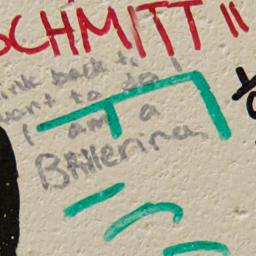 SCHMITT II
ink back to
want to do !
I am a
BAllerina